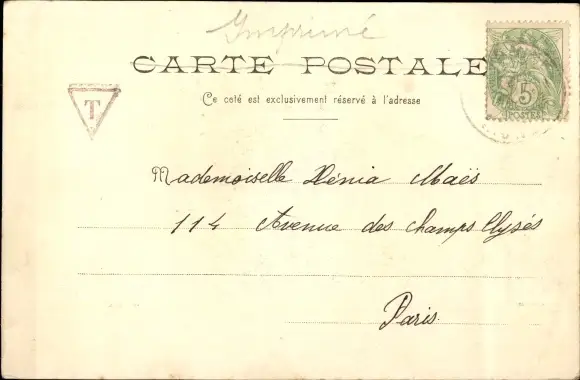 Imprimé
CARTE POSTALE
Ce coté est exclusivement réservé à l'adresse
T
5
POSTES
Mademoiselle Xénia Maës
114 Avenue des Champs Elysés
Paris